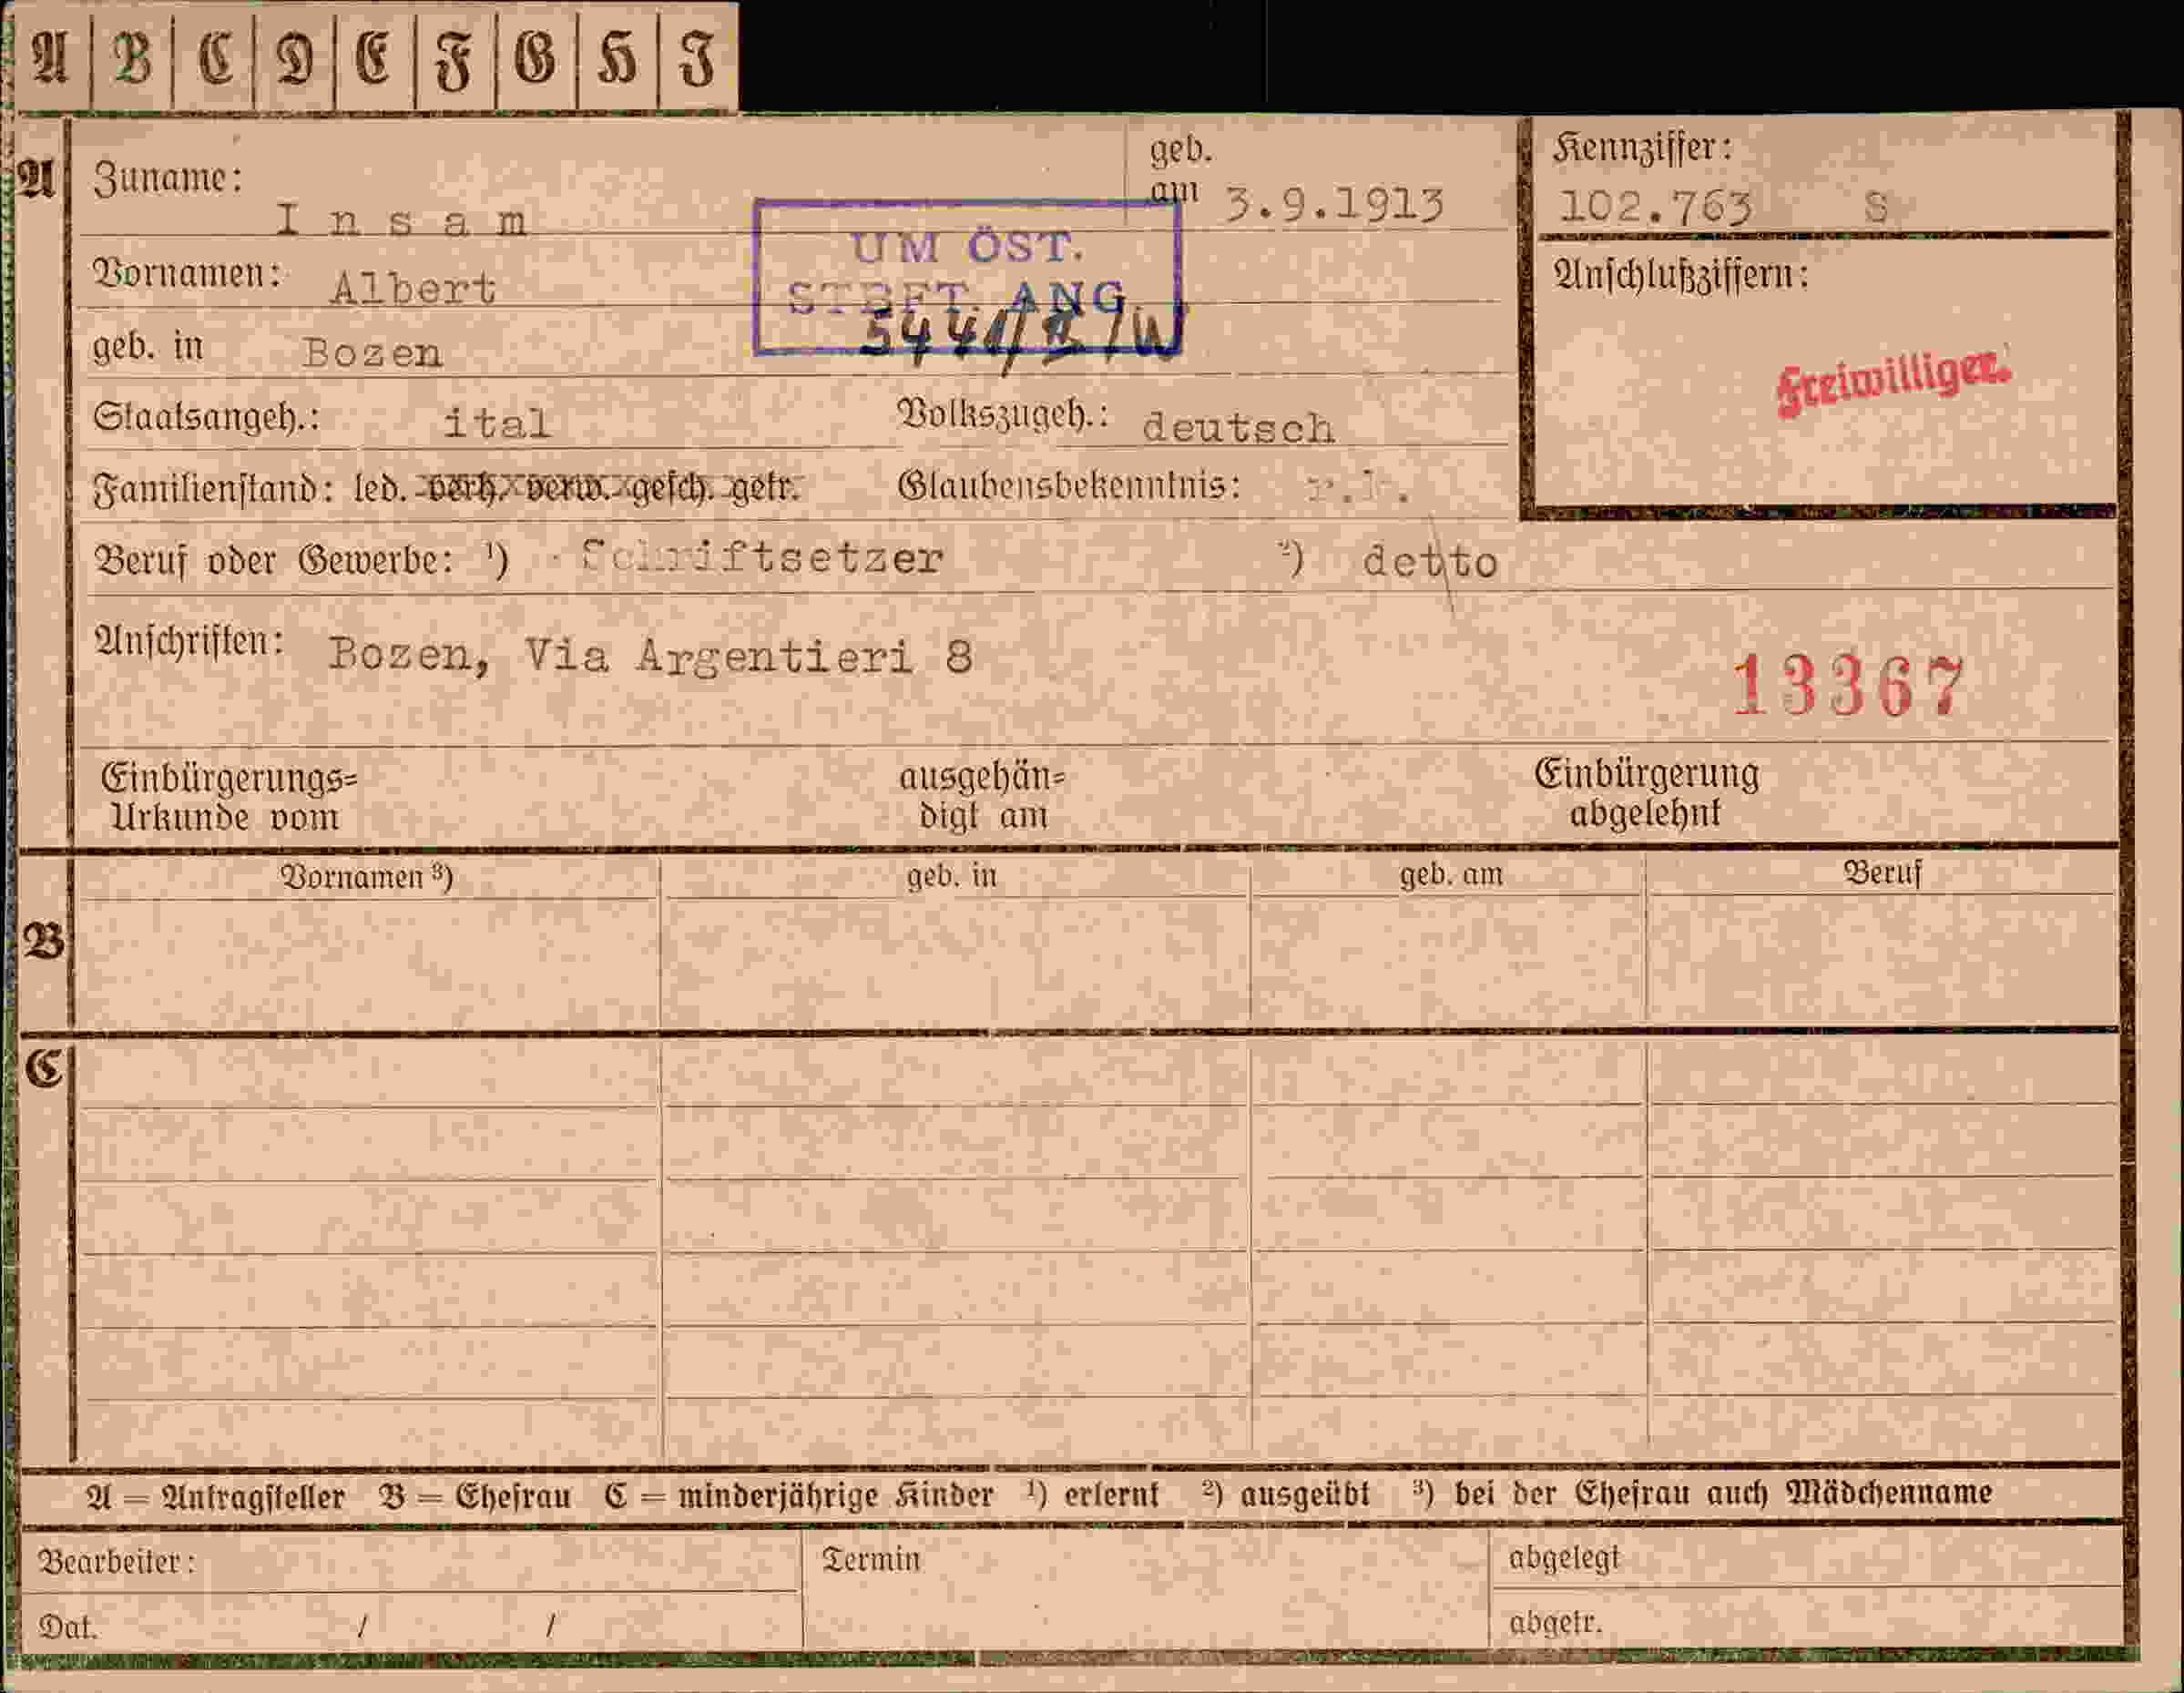 A B C D E F G H I
A Zuname: Insam geb. am 3.9.1913
Kennziffer: 102.763 S
UM ÖST. STBFT. ANG.
Vornamen: Albert
Anschlußziffern:
geb. in Bozen
Freiwilliger.
Staatsangeh.: ital Volkszugeh.: deutsch
Familienstand: led. verh. verw. gesch. getr. Glaubensbekenntnis: r.k.
Beruf oder Gewerbe: ¹) Schriftsetzer ²) detto
Anschriften: Bozen, Via Argentieri 8
13367
Einbürgerungs=
Urkunde vom
ausgehän=
digt am
Einbürgerung
abgelehnt
B Vornamen ³) geb. in geb. am Beruf
C
A = Antragsteller B = Ehefrau C = minderjährige Kinder ¹) erlernt ²) ausgeübt ³) bei der Ehefrau auch Mädchenname
Bearbeiter: Termin abgelegt
Dat. / / abgetr.